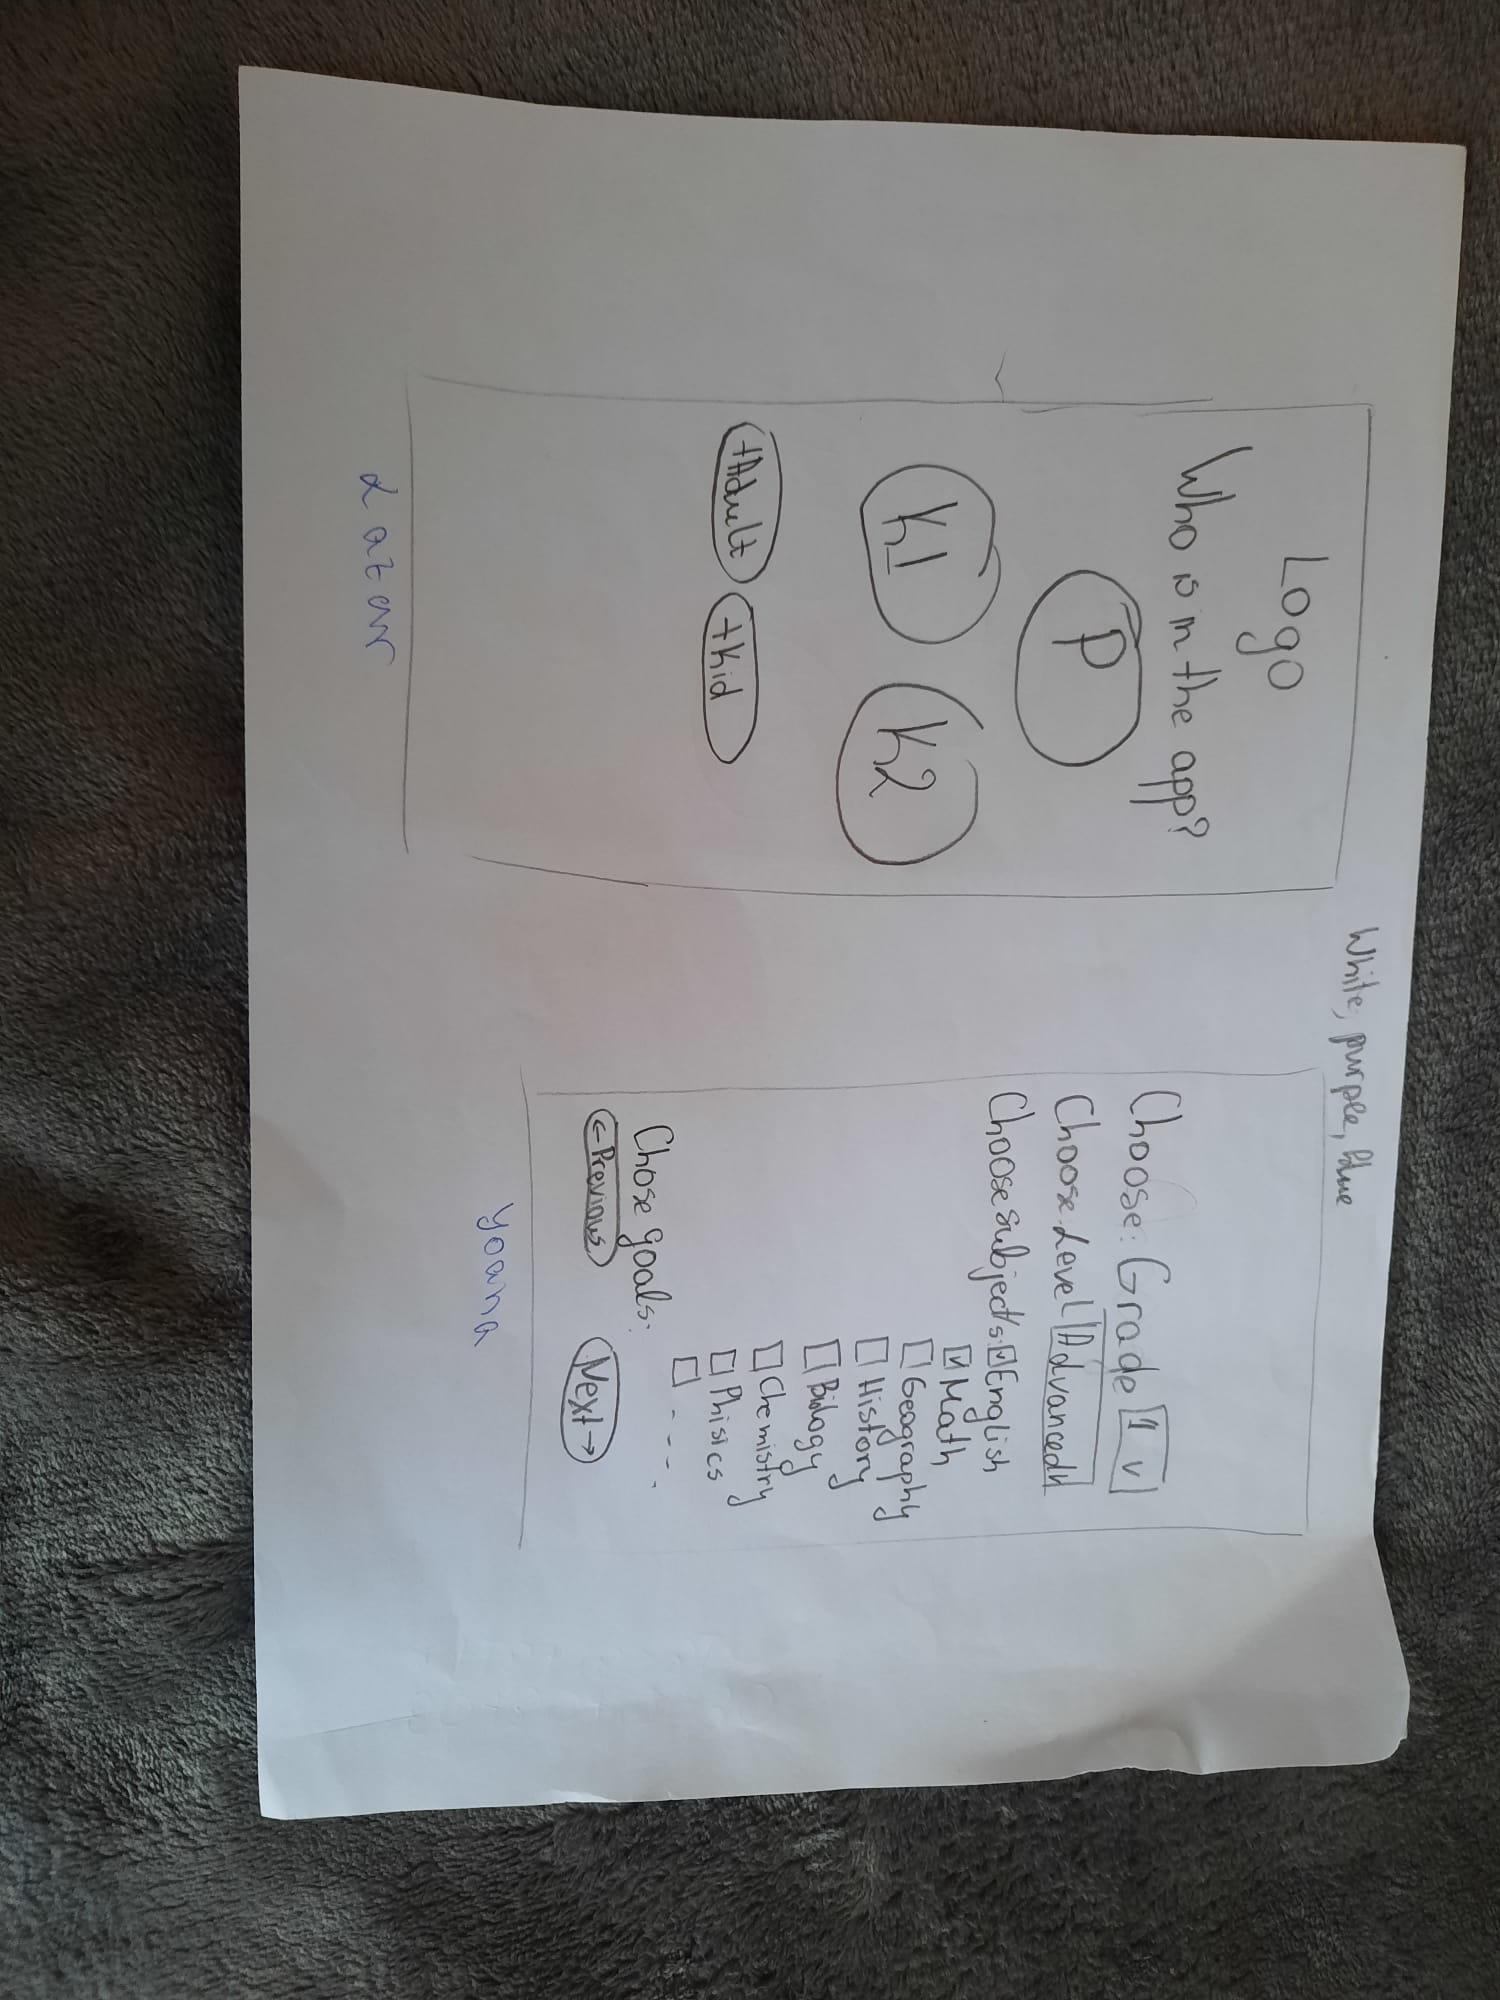 White, purple, blue
Logo
Who is in the app?
P
K1
K2
+Adult
+Kid
Lazar
Choose: Grade 1 v
Choose Level Advanced v
Choose subject/s: English
Math
Geography
History
Biology
Chemistry
Phisics
....
Chose goals:
← Previous
Next →
yoana